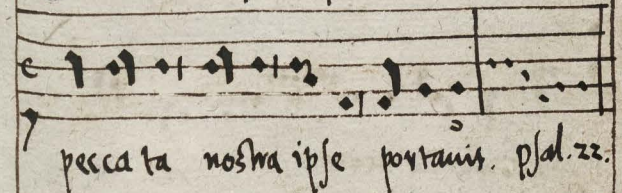 peccata nostra ipse portauit. psal. 22.